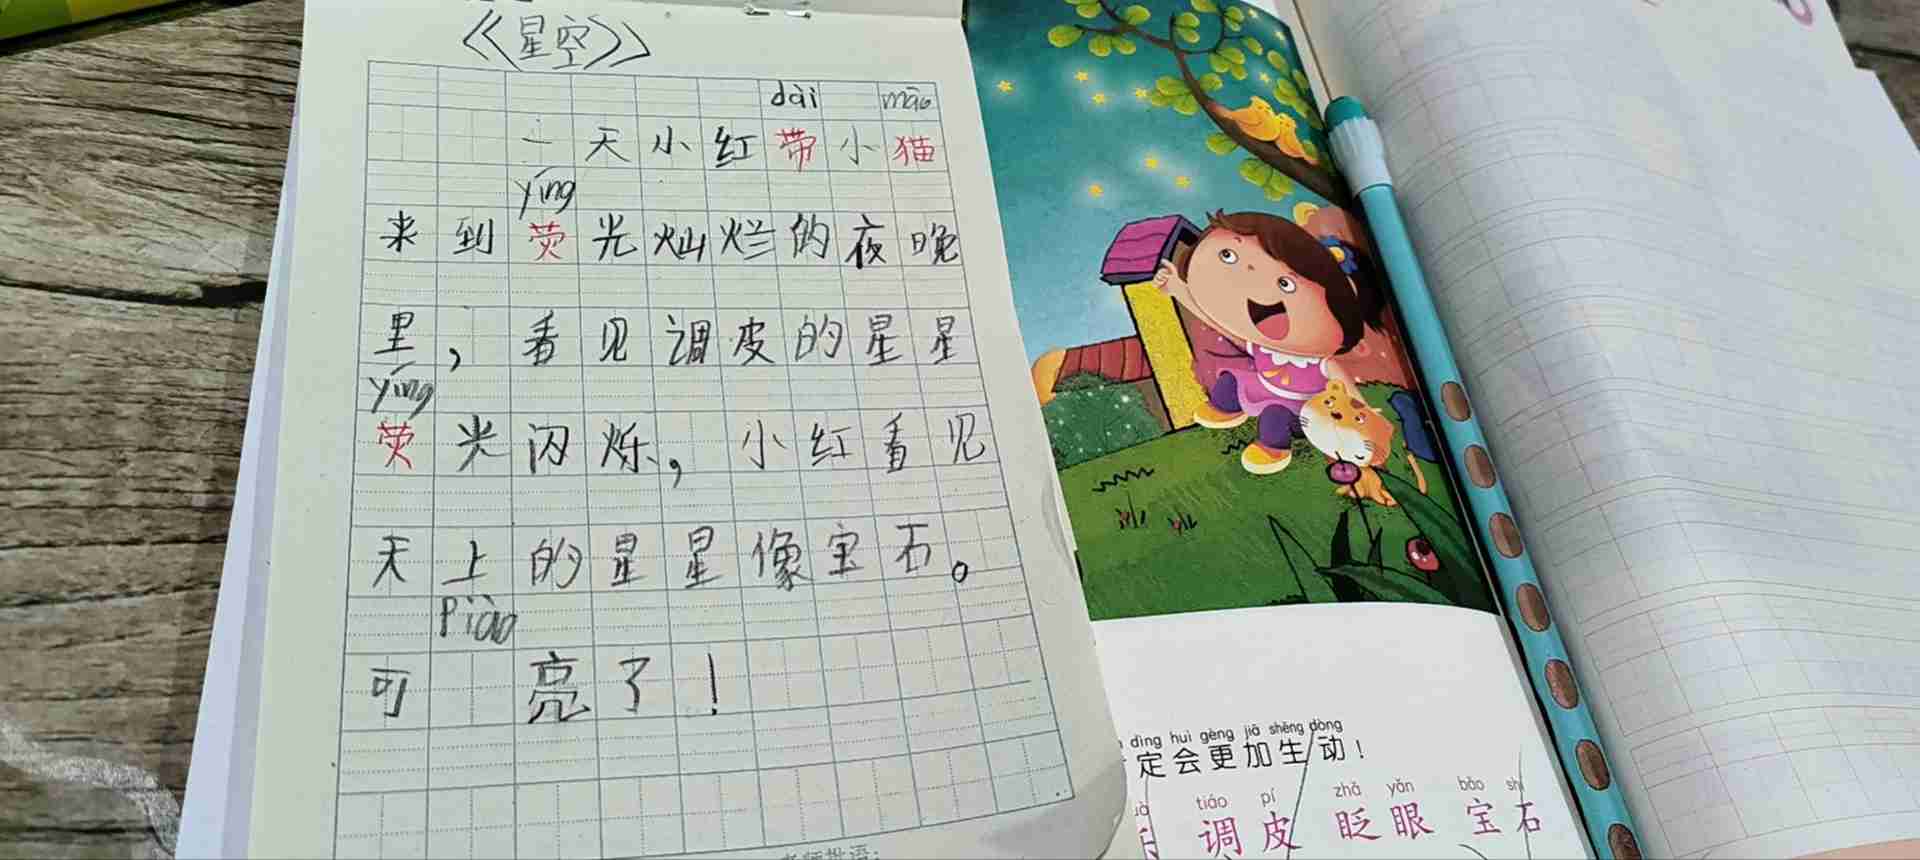 《星空》
dài māo
一天小红带小猫
yíng
来到荧光灿烂的夜晚
里，看见调皮的星星
yíng
荧光闪烁，小红看见
天上的星星像宝石。
Piào
可 亮了！
dìng huì gèng jiā shēng dòng
定会更加生动！
tiáo pí zhǎ yǎn bǎo shí
调皮 眨眼 宝石